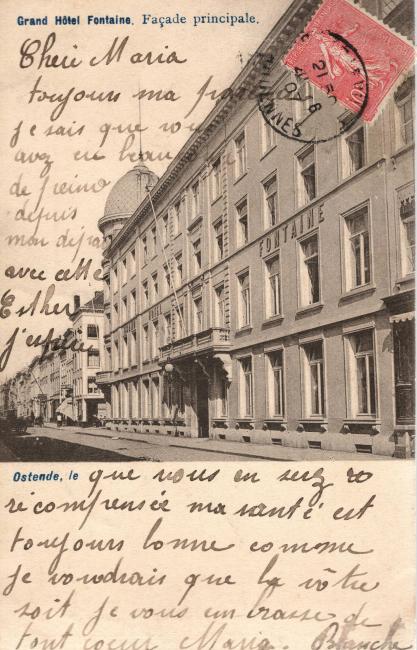 Grand Hôtel Fontaine. Façade principale.
Cheri Maria
toujours ma
je sais que vou
avez eu beau
de peine
depuis
mon dépar
avec cette
Esther
j'espère
FONTAINE
Ostende, le que vous en serez
récompensée ma santé est
toujours bonne comme
je voudrais que la vôtre
soit je vous embrasse de
tout coeur Maria. Blanche